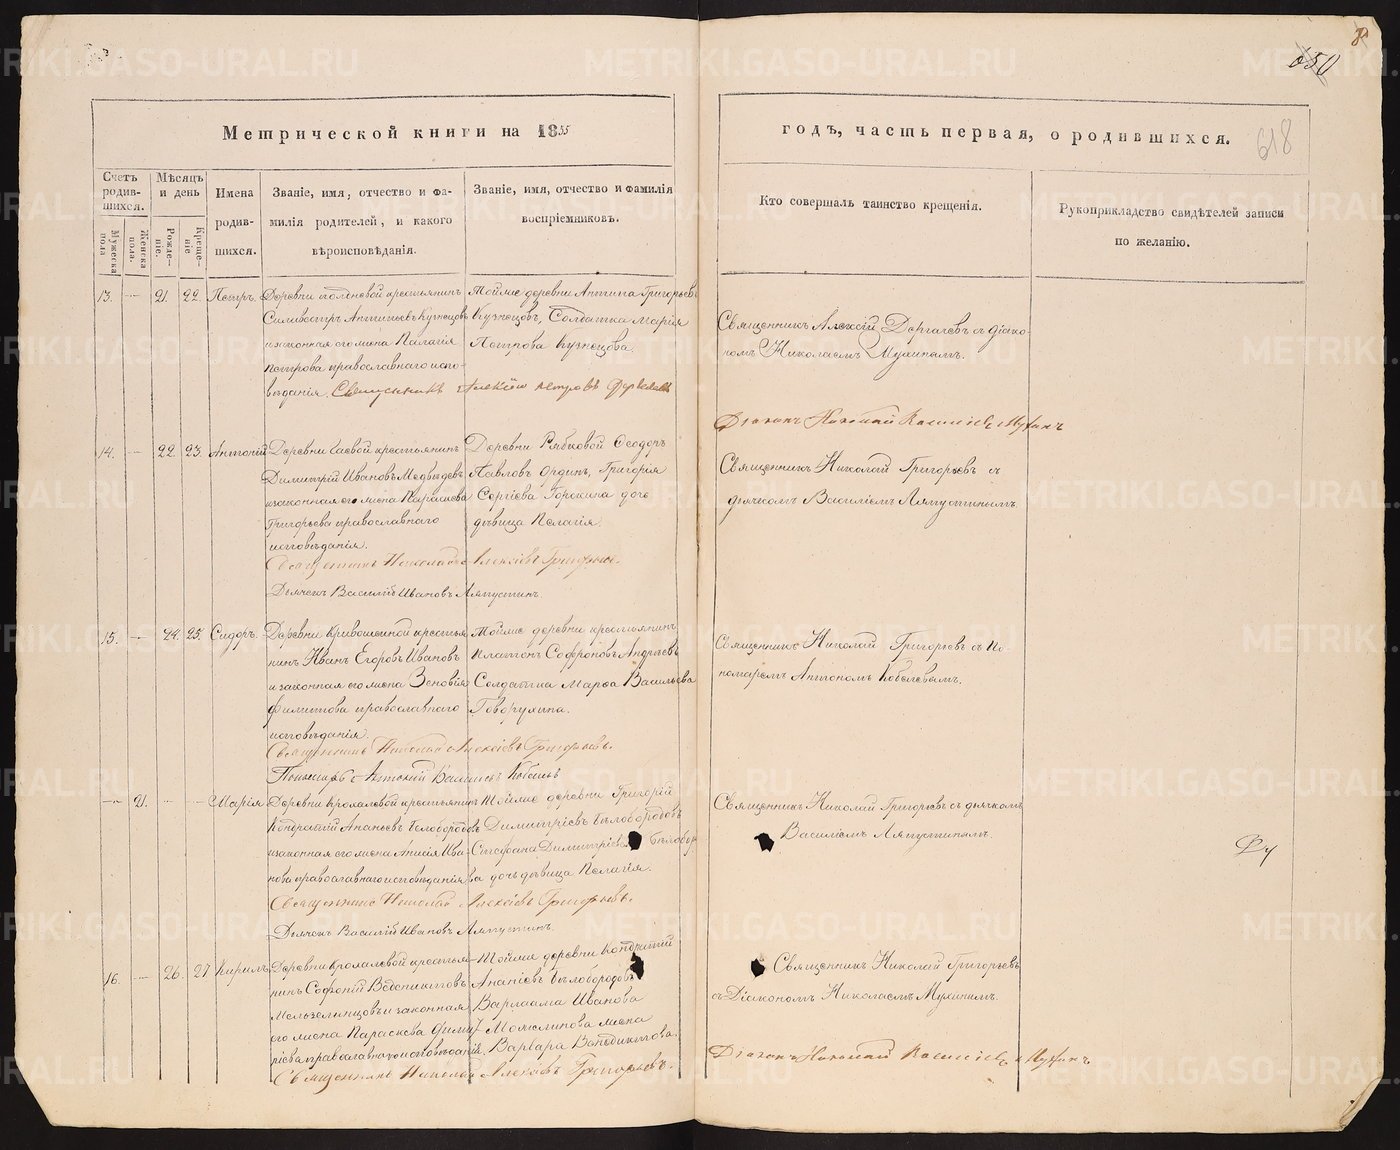 650
618
Метрической книги на 1855
годъ, часть первая, о родившихся.
Счетъ родившихся.
Мѣсяцъ и день
Имена родившихся.
Званіе, имя, отчество и фамилія родителей, и какого вѣроисповѣданія.
Званіе, имя, отчество и фамилія воспріемниковъ.
Кто совершалъ таинство крещенія.
Рукоприкладство свидѣтелей записи по желанію.
Мужеска пола
Женска пола.
Рожденіе.
Крещеніе
13. — 21. 22. Петръ.
крестьянинъ
Силивестръ Антиповъ Кузнецовъ
и законная его жена Палагія
Петрова православнаго испо-
вѣданія. Священникъ Алексій Петровъ
Тойже деревни Антипа Григорьевъ
Кузнецовъ, Солдатка Марія
Петрова Кузнецова.
Священникъ Алексій Дергачевъ съ діако-
номъ Николаемъ Мухинымъ.
Діаконъ Николай Василіевъ Мухинъ
14. — 22. 23. Антоній
Деревни крестьянинъ
Димитрій Ивановъ Медвѣдевъ
и законная его жена Параскева
Григорьева православнаго
исповѣданія.
Священникъ Николай Алексіевъ Григорьевъ.
Дьячекъ Василій Ивановъ Ляпустинъ.
Деревни Рябковой Ѳеодоръ
Павловъ Ординъ, Григорія
Сергіева дочь
дѣвица Пелагія.
Священникъ Николай Григорьевъ съ
дьячкомъ Василіемъ Ляпустинымъ.
15. — 24. 25. Сидоръ.
Деревни крестья-
нинъ Иванъ Егоровъ Ивановъ
и законная его жена Зеновія
Филиппова православнаго
исповѣданія.
Священникъ Николай Алексіевъ Григорьевъ.
Тойже деревни крестьянинъ
Платонъ Софроновъ Андреевъ
Солдатка Марѳа Васильева
Говорухина.
Священникъ Николай Григорьевъ съ по-
номаремъ Антономъ Кобелевымъ.
— 21. — — Марія
Деревни Крохалевой крестьянинъ
Кондратій Ананьевъ Белобородовъ
и законная его жена Анисія Ива-
нова православнаго исповѣданія
Священникъ Николай Алексіевъ Григорьевъ.
Дьячекъ Василій Ивановъ Ляпустинъ.
Тойже деревни Григорій
Димитріевъ Бѣлобородовъ
Стефана Димитріева Бѣлоборо-
ва дочь дѣвица Пелагія.
Священникъ Николай Григорьевъ съ дьячкомъ
Василіемъ Ляпустинымъ.
16. — 26. 27 Кирилъ
Деревни Крохалевой крестья-
нинъ Софоній
и законная
его жена Параскева Дими-
тріева православнаго исповѣданія.
Священникъ Николай Алексіевъ Григорьевъ.
Тойже деревни Кондратій
Ананіевъ Бѣлобородовъ
Варлаама Иванова
жена
Варвара Венедиктова.
Священникъ Николай Григорьевъ
съ Діакономъ Николаемъ Мухинымъ.
Діаконъ Николай Василіевъ Мухинъ
METRIKI.GASO-URAL.RU